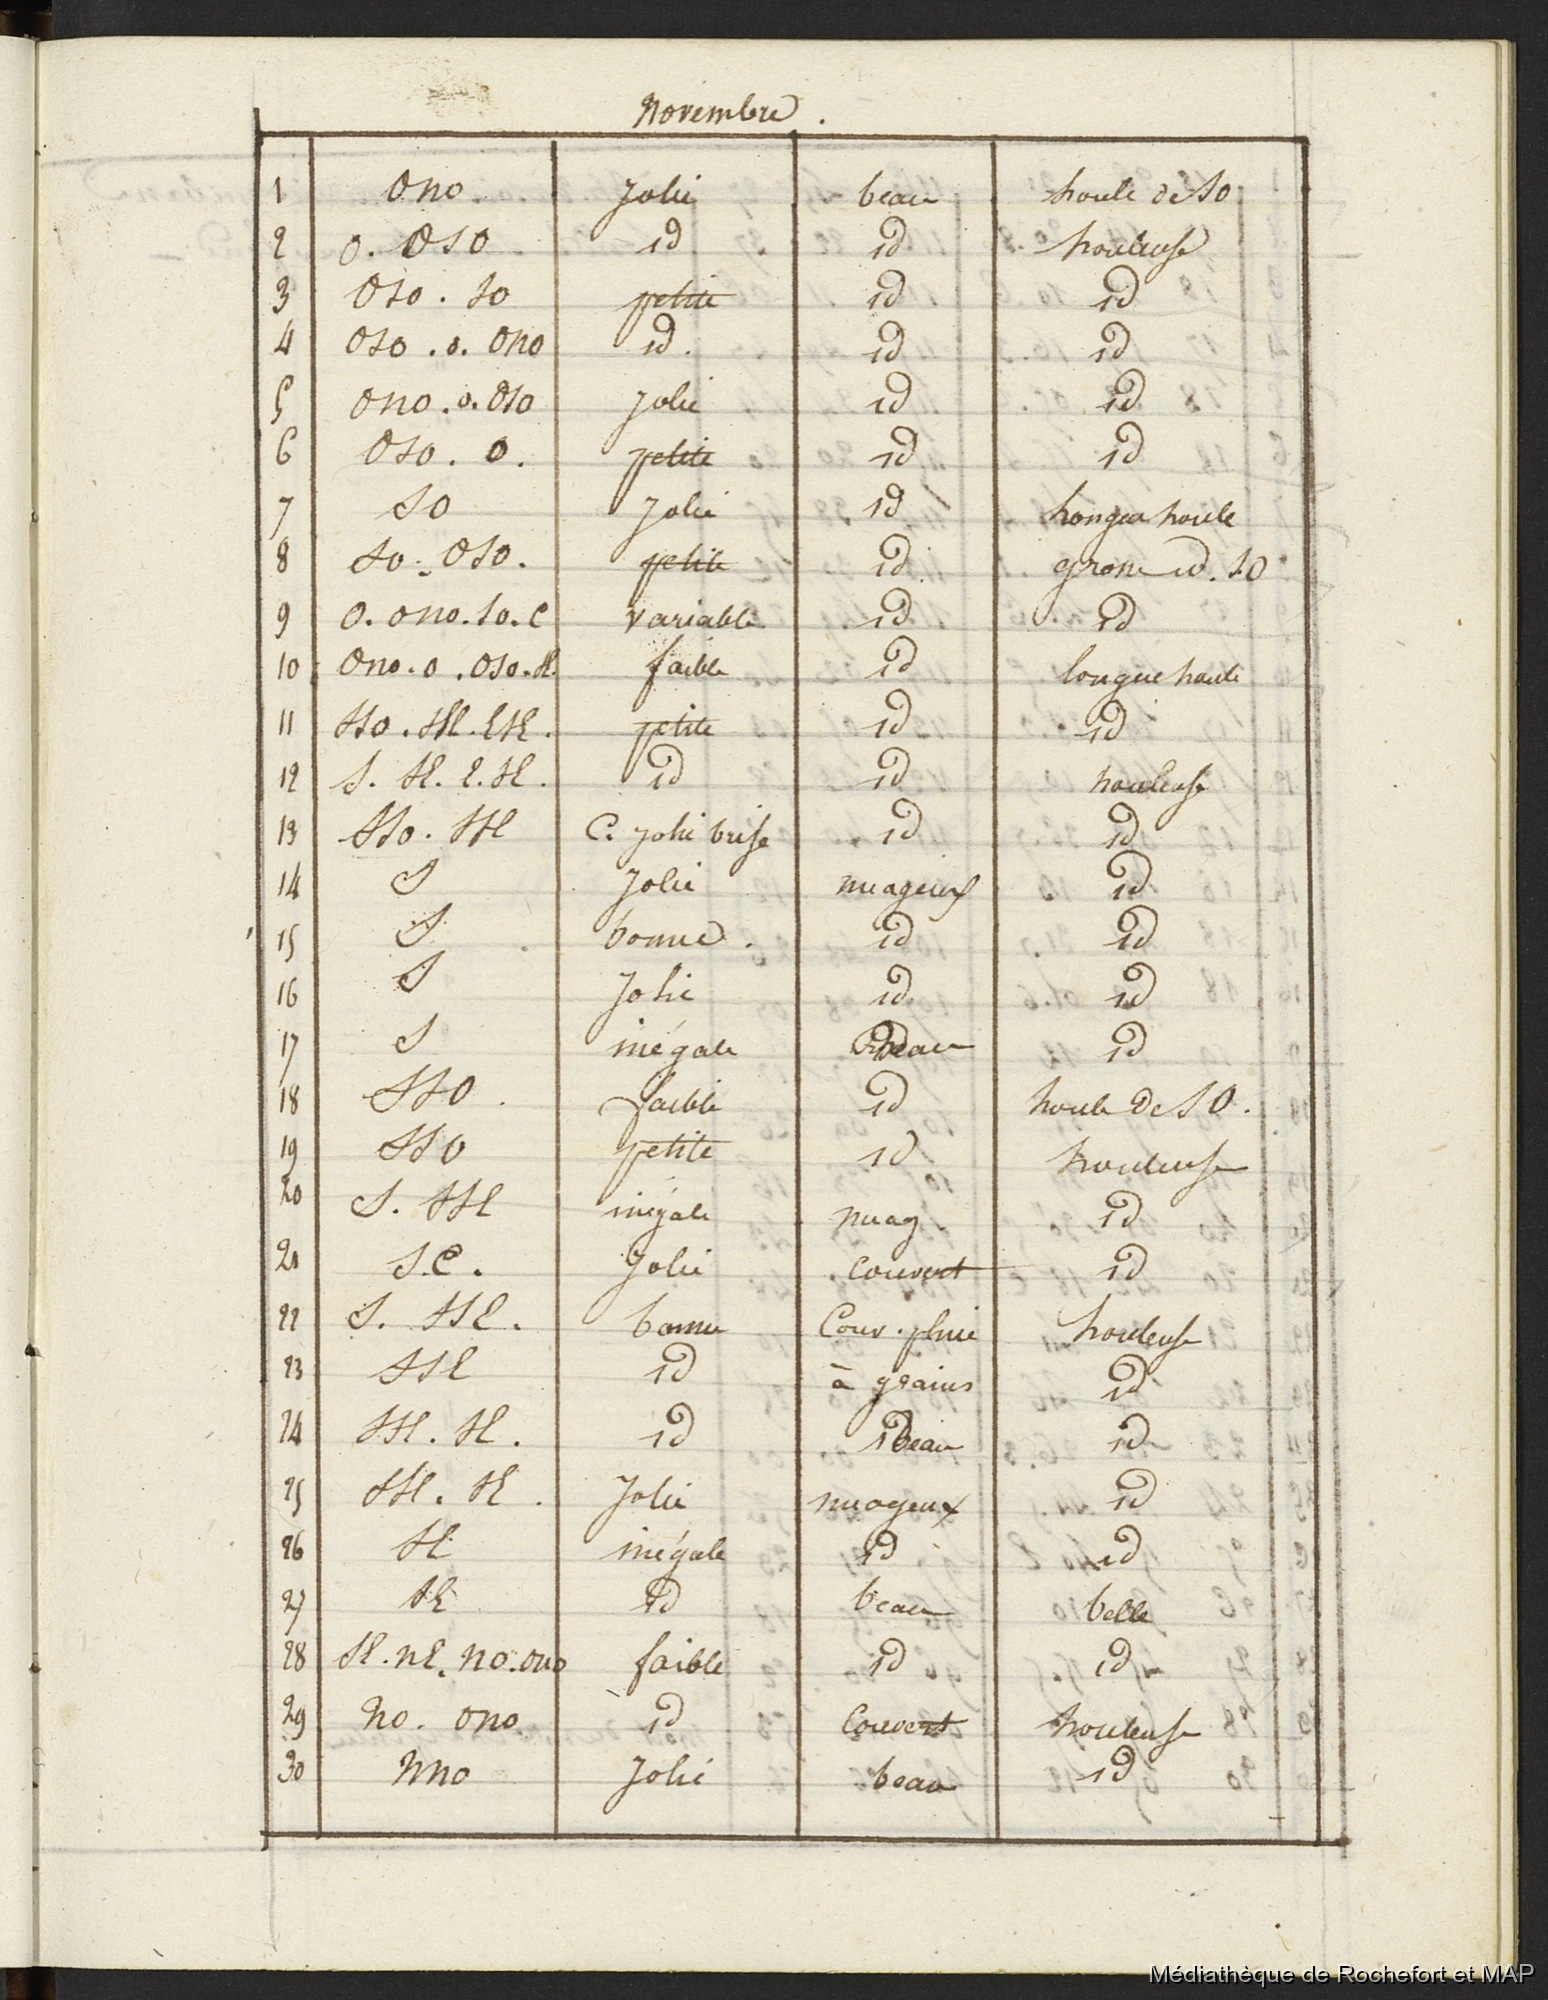 Novembre.
1 ONO Jolie beau houle de SO
2 O. OSO id id houleuse
3 OSO. SO petite id id
4 OSO. O. ONO id. id id
5 ONO. O. OSO Jolie id id
6 OSO. O. petite id id
7 SO Jolie id longue houle
8 SO. OSO. petite id grosse id. SO
9 O. ONO. SO. C variable id id
10 ONO. O. OSO. SE. faible id longue houle
11 SSO. SSE. ESE. petite id id
12 S. SE. E. SE. id id houleuse
13 SSO. SSE C. jolie brise id id
14 S Jolie nuageux id
15 S bonne. id id
16 S Jolie id id
17 S inégale beau id
18 SSO. faible id houle de SO.
19 SSO petite id houleuse
20 S. SSE inégale nuag id
21 S.E. Jolie couvert id
22 S. SSE. bonne Couv. pluie houleuse
23 SSE id à grains id
24 SSE. SE. id beau id
25 SSE. SE. Jolie nuageux id
26 SE inégale id id
27 SE id beau belle
28 SE. NE. NO. ONO faible id id
29 NO. ONO id Couvert houleuse
30 NNO Jolie beau id
Médiathèque de Rochefort et MAP